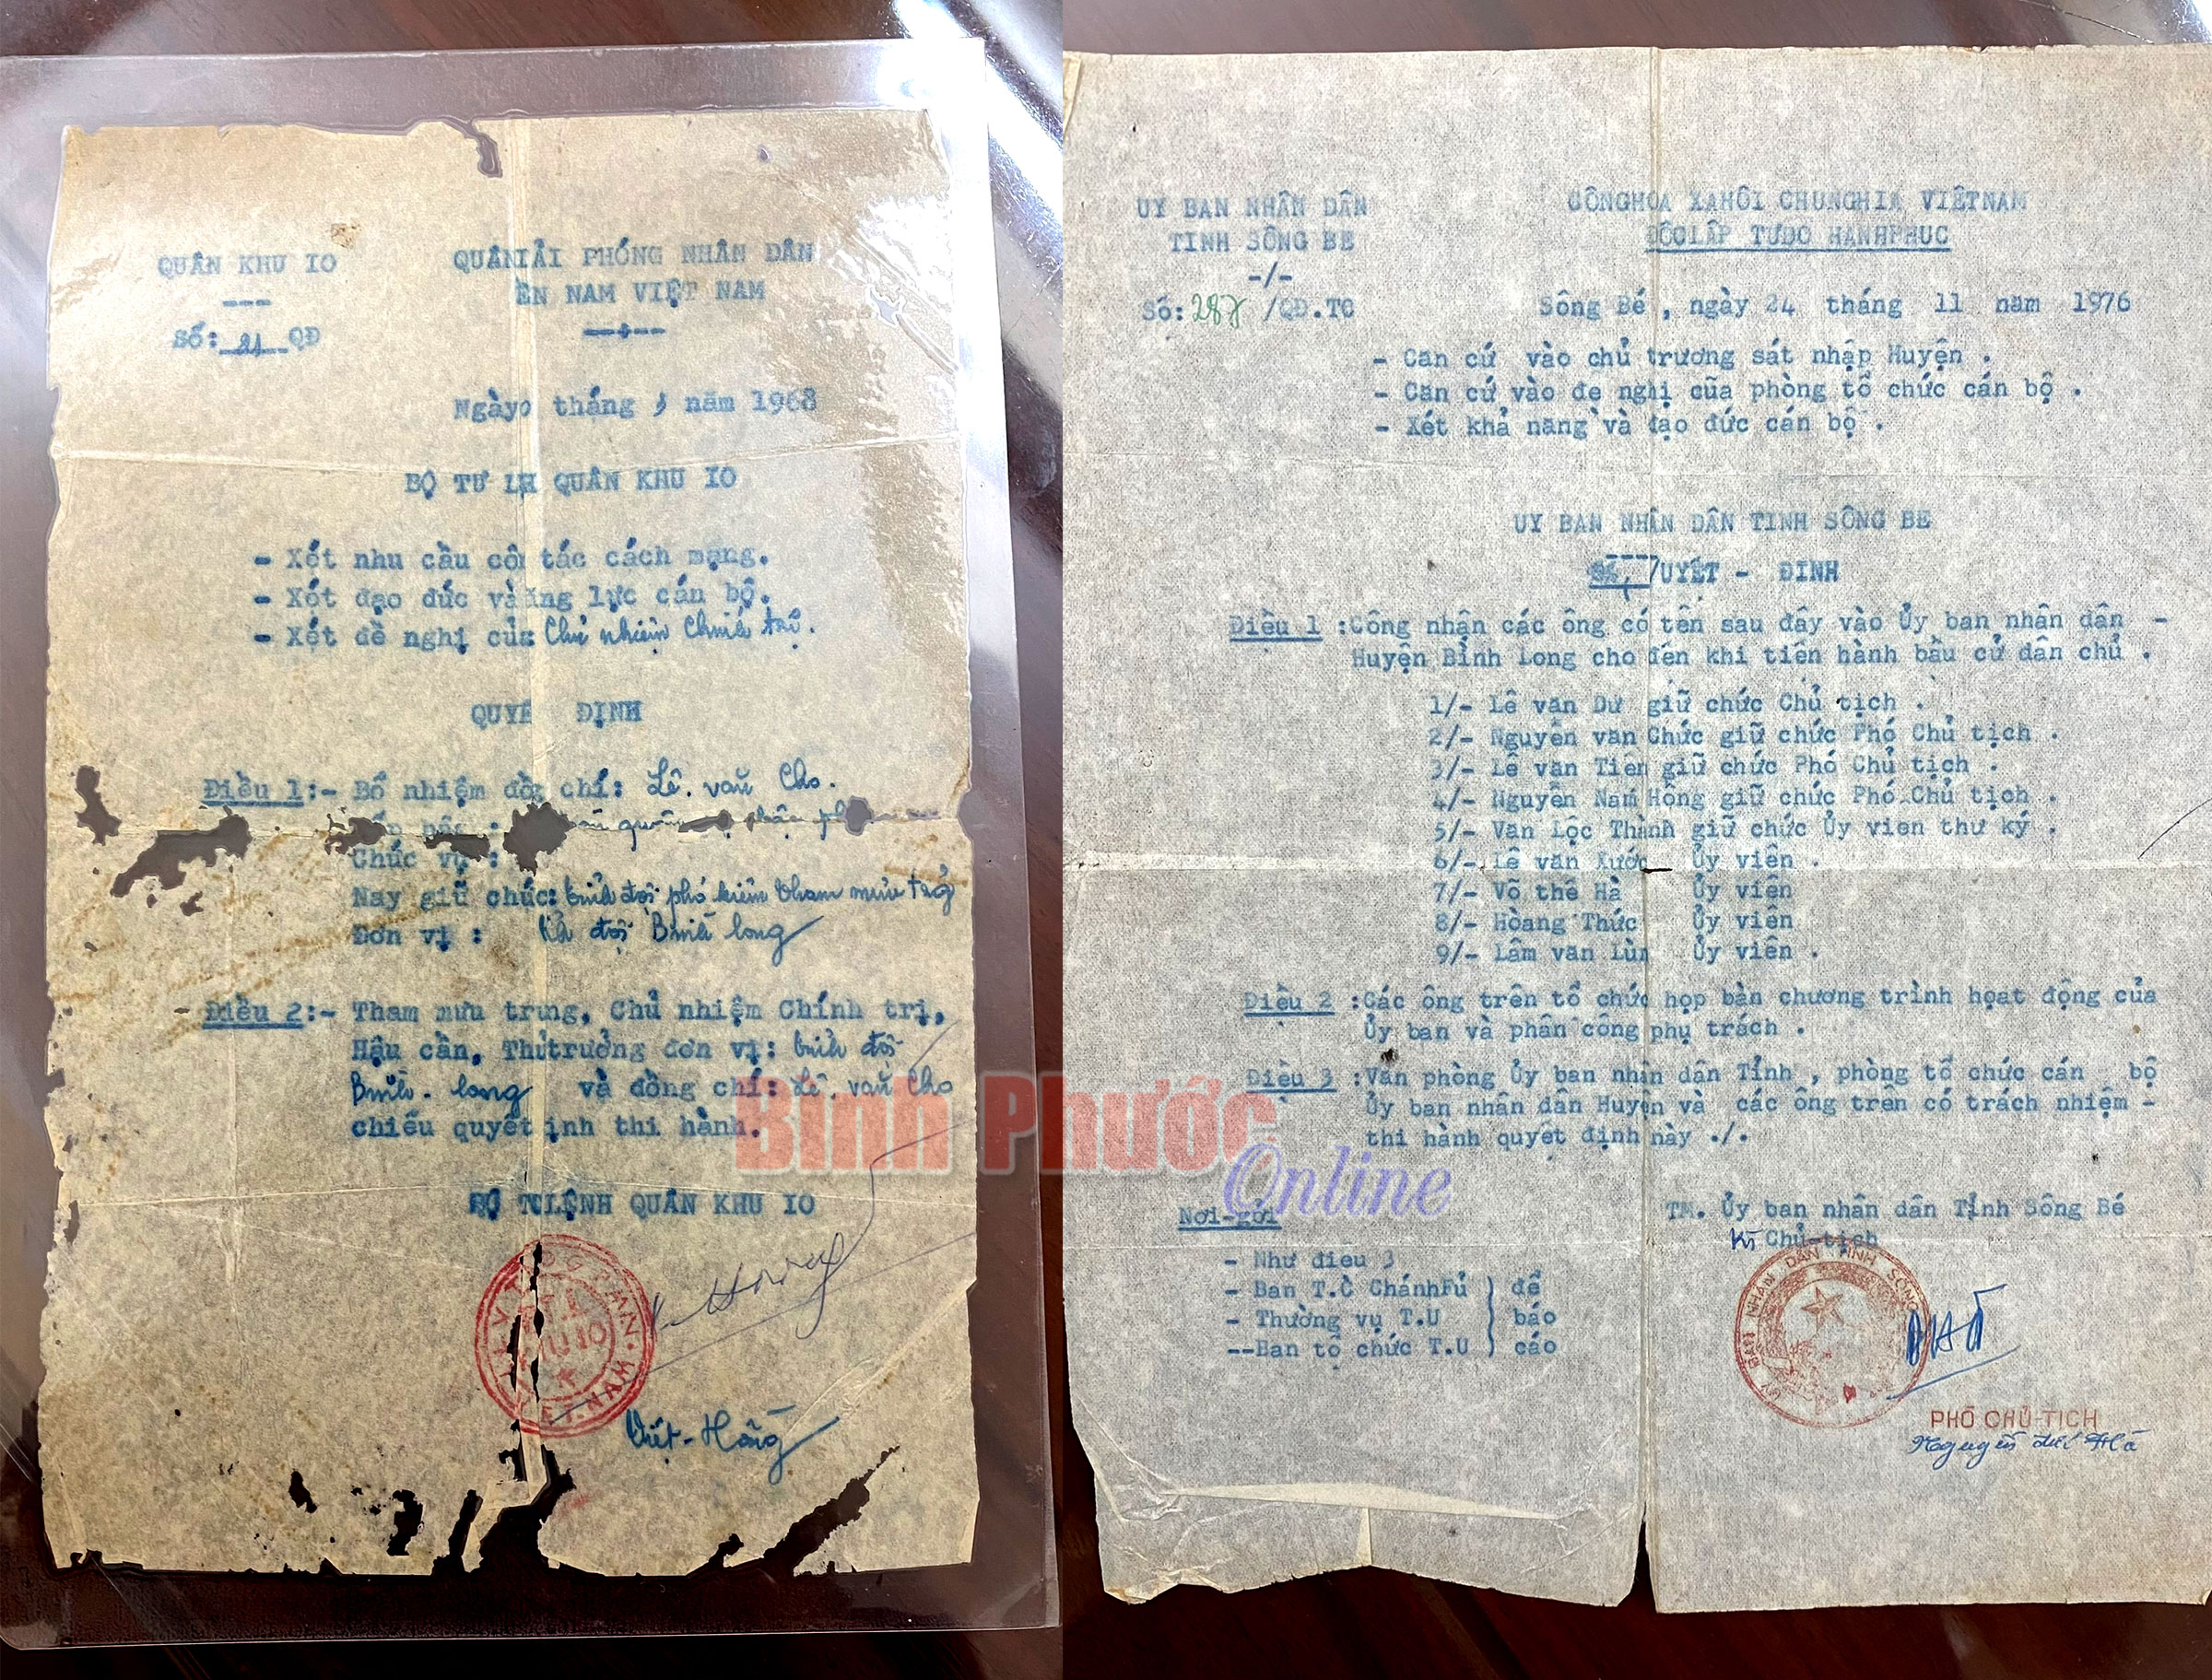 QUÂN KHU IO
Số: 21 QĐ
QUÂN IẢI PHÓNG NHÂN DÂN
ỀN NAM VIỆT NAM
Ngày tháng năm 1968
BỘ TƯ LH QUÂN KHU IO
- Xét nhu cầu côn tác cách mạng.
- Xét đạo đức và ăng lực cán bộ.
- Xét đề nghị của Chủ nhiệm Chính trị.
QUYẾ ĐỊNH
Điều 1:- Bổ nhiệm đồn chí: Lê văn Cho.
Chức vụ :
Nay giữ chức: tỉnh đội phó kiêm tham mưu trg
Đơn vị : tỉnh đội Bình long
- Điều 2:- Tham mưu trưng, Chủ nhiệm Chính trị,
Hậu cần, Thủ trưởng đơn vị: tỉnh đội
Bình - long và đồng chí: Lê văn Cho
chiếu quyết ịnh thi hành.
BỘ T LỆNH QUÂN KHU IO
VIET.NAM
Việt - Hồng
UY BAN NHÂN DÂN
TINH SÔNG BE
-/-
Số: 287 /QĐ.TC
CÔNGHOA XAHÔI CHUNGHIA VIÊTNAM
ĐÔCLÂP TƯDO HANHPHUC
Sông Bé , ngày 24 tháng 11 năm 1976
- Căn cứ vào chủ trương sát nhập Huyện .
- Căn cứ vào đe nghị cũa phòng tổ chức cán bộ .
- Xét khả năng và đạo đức cán bộ .
UY BAN NHÂN DÂN TINH SÔNG BE
UYẾT - ĐINH
Điều 1 :Công nhận các ông có tên sau đây vào Ủy ban nhân dân -
Huyện Bình Long cho đến khi tiến hành bầu cử dân chủ .
1/- Lê văn Dư giữ chức Chủ tịch .
2/- Nguyễn văn Chức giữ chức Phó Chủ tịch .
3/- Lê văn Tiên giữ chức Phó Chủ tịch .
4/- Nguyễn Nam Hồng giữ chức Phó Chủ tịch .
5/- Văn Lộc Thành giữ chức Ủy viên thư ký .
6/- Lê văn Xước Ủy viên .
7/- Võ thế Hà Ủy viên
8/- Hoàng Thức Ủy viên
9/- Lâm văn Lùn Ủy viên .
Điều 2 :Các ông trên tổ chức họp bàn chương trình hoạt động của
Ủy ban và phân công phụ trách .
Điều 3 :Văn phòng Ủy ban nhân dân Tỉnh , phòng tổ chức cán bộ
Ủy ban nhân dân Huyện và các ông trên có trách nhiệm -
thi hành quyết định này ./.
Nơi-gởi
- Như điều 3
- Ban T.C ChánhFủ ) để
- Thường vụ T.U ) báo
--Ban tổ chức T.U ) cáo
TM. Ủy ban nhân dân Tỉnh Sông Bé
Kt Chủ-tịch
BAN NHÂN DÂN TỈNH SÔNG
PHÓ CHỦ-TỊCH
Bình Phước
Online